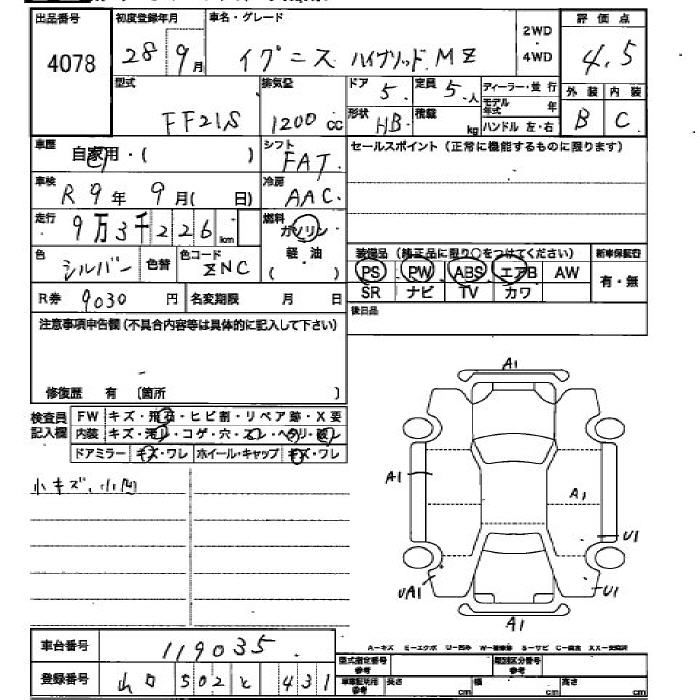 出品番号 初度登録年月 車名・グレード 2WD・4WD 評価点
4078 28 9月 イグニス ハイブリッド MZ 4.5
型式 排気量 ドア 定員 ディーラー・並行 外装 内装
FF21S 1200cc 5 5人 モデル年式 年 B C
形状 HB 積載 kg ハンドル 左・右
車歴 自家用・( ) シフト FAT セールスポイント(正常に機能するものに限ります)
車検 R9年 9月( 日) 冷房 AAC
走行 9万3千226km 燃料 ガソリン
軽・油
( )
色 シルバー 色替 色コード ZNC
装備品(純正品に限り○をつけてください) 新車保証書
PS PW ABS エアB AW 有・無
SR ナビ TV カワ
R券 9030円 名変期限 月 日 後日品
注意事項申告欄(不具合内容等は具体的に記入して下さい)
修復歴 有 〔箇所 〕
検査員記入欄 FW キズ・飛石・ヒビ割・リペア跡・X要
内装 キズ・汚れ・コゲ・穴・スレ・ヘタリ・破レ
ドアミラー キズ・ワレ ホイール・キャップ キズ・ワレ
小キズ、小凹
A1
A1
A1
U1
UA1
U1
A1
車台番号 119035
登録番号 山口 502 と 431
A-キズ U-凹み
型式指定番号 参考 類別区分番号 参考
車庫証明用 参考 長さ cm 幅 cm 高さ cm